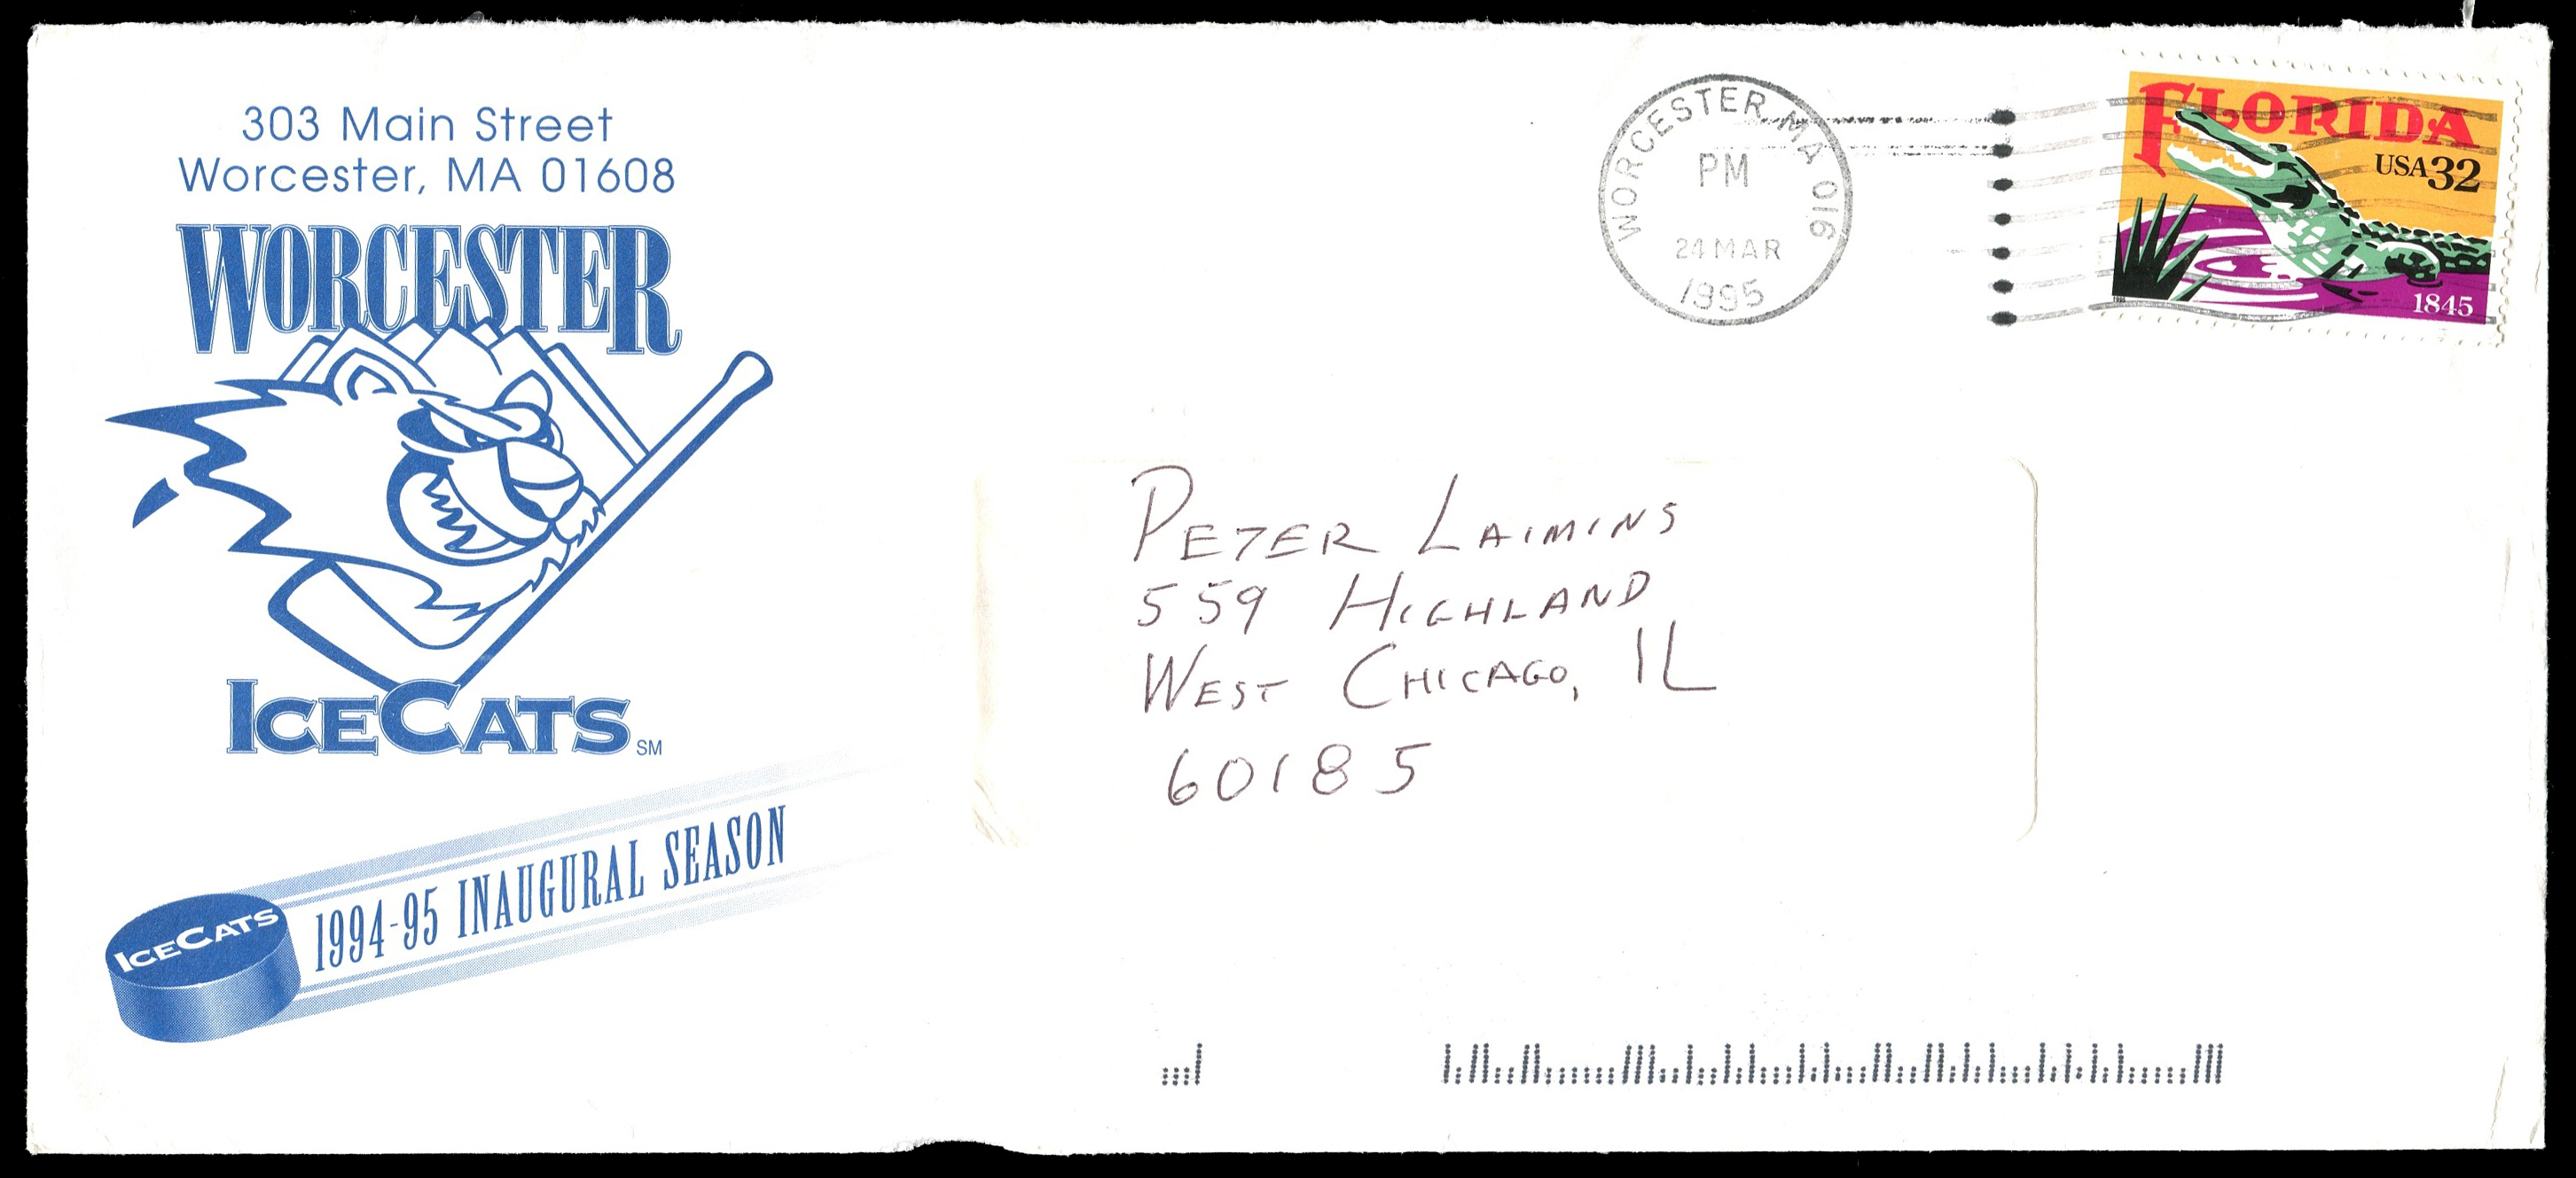 303 Main Street
Worcester, MA 01608
WORCESTER
ICECATS SM
ICECATS
1994-95 INAUGURAL SEASON
WORCESTER, MA 016
PM
24 MAR
1995
FLORIDA
USA 32
1845
PETER LAIMINS
559 HIGHLAND
WEST CHICAGO, IL
60185